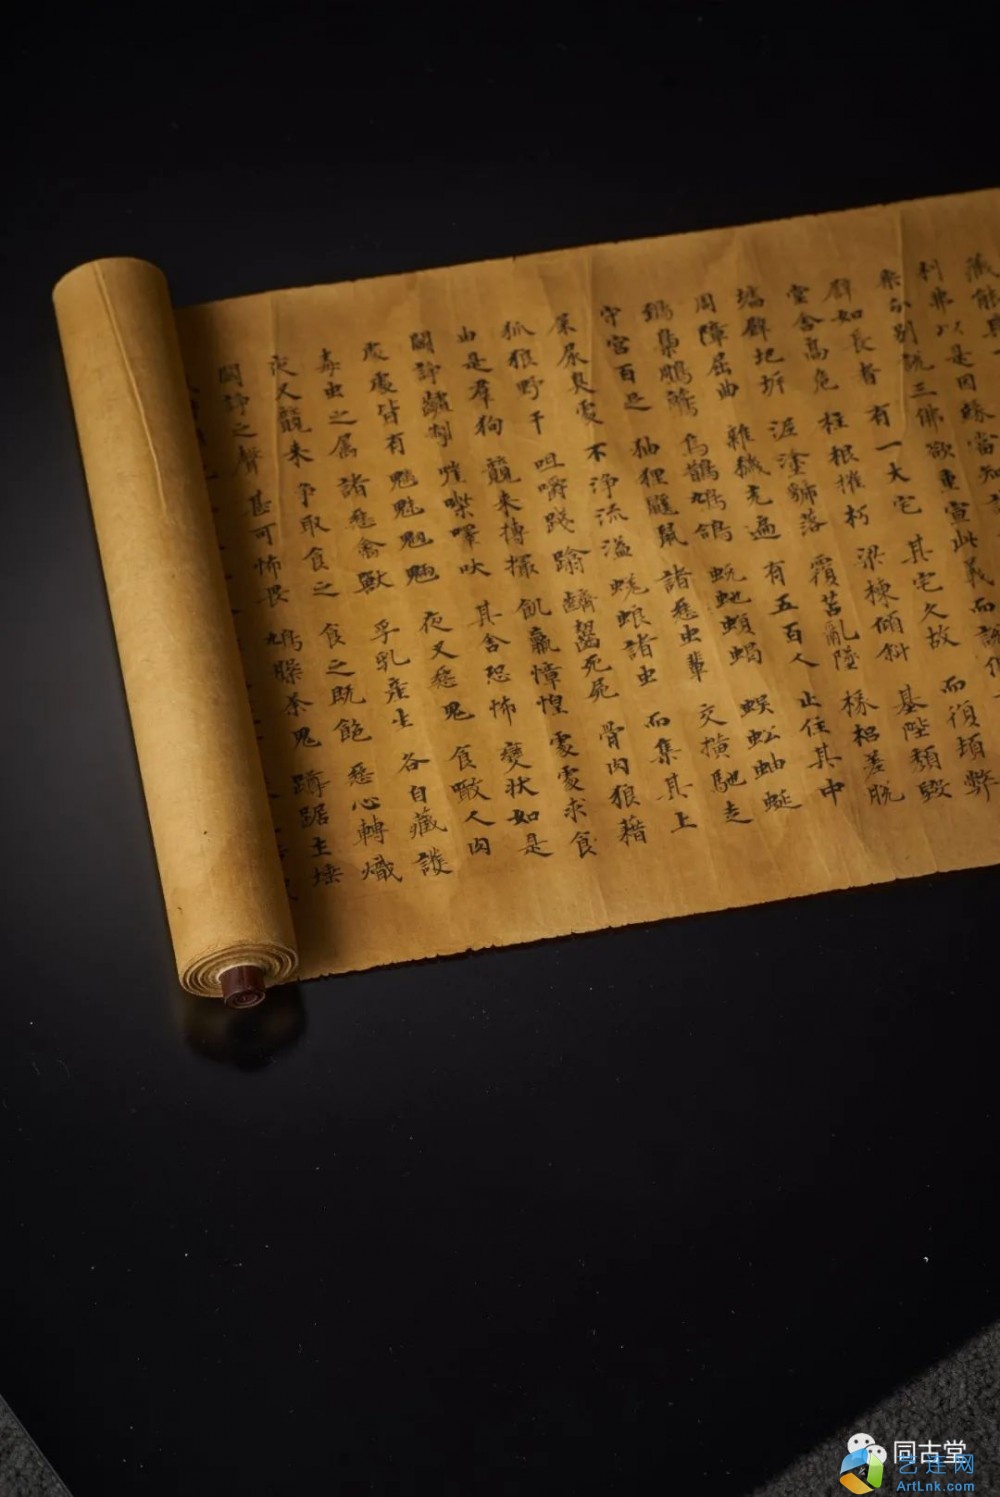 藏能具
利弗以是因緣當知
乘分別說三佛欲重宣此義而說偈
譬如長者 有一大宅 其宅久故 而復頓弊
堂舍高危 柱根摧朽 梁棟傾斜 基陛頹毀
墻壁圮坼 泥塗褫落 覆苫亂墜 椽梠差脫
周障屈曲 雜穢充遍 有五百人 止住其中
鵄梟鵰鷲 烏鵲鳩鴿 蚖虵蝮蝎 蜈蚣蚰蜒
守宮百足 狖狸鼷鼠 諸惡虫輩 交撗馳走
屎尿臭處 不淨流溢 蜣蜋諸虫 而集其上
狐狼野干 咀嚼踐蹹 齩齧死屍 骨肉狼藉
由是羣狗 競来搏撮 飢羸慞惶 處處求食
鬪諍䶥掣 啀喍嘷吠 其舍恐怖 變狀如是
處處皆有 魑魅魍魎 夜叉惡鬼 食噉人肉
毒虫之屬 諸惡禽獸 孚乳產生 各自藏護
夜叉競来 爭取食之 食之既飽 惡心轉熾
鬪諍之聲 甚可怖畏 鳩槃荼鬼 蹲踞土埵
同古堂
艺连网
ArtLnk.com